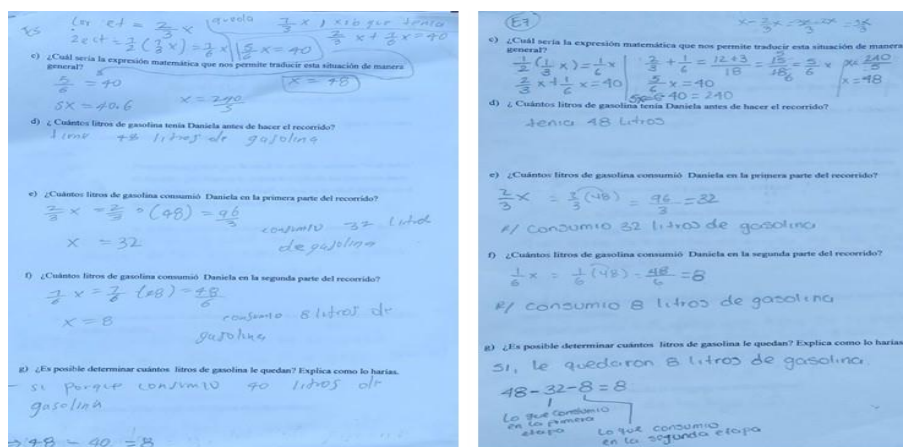 2/3 x
1/2 (1/3 x) = 1/6 x
5/6 x = 40
2/3 x + 1/6 x = 40
c) ¿Cuál sería la expresión matemática que nos permite traducir esta situación de manera
general?
5/6 = 40
x = 48
5x = 40.6
x = 240/5
d) ¿ Cuántos litros de gasolina tenía Daniela antes de hacer el recorrido?
48 litros de gasolina
e) ¿Cuántos litros de gasolina consumió Daniela en la primera parte del recorrido?
2/3 x = 2/3 • (48) = 96/3
consumio 32 litros
x = 32
de gasolina
f) ¿Cuántos litros de gasolina consumió Daniela en la segunda parte del recorrido?
= 48/6
x = 8
consumio 8 litros de
gasolina
g) ¿Es posible determinar cuántos litros de gasolina le quedan? Explica como lo harías.
- si porque consumio 40 litros de
gasolina
48 - 40 = 8
E7
c) ¿Cuál sería la expresión matemática que nos permite traducir esta situación de manera
general?
1/2 (1/3 x) = 1/6 x
2/3 + 1/6 = 12+3/18 = 15/18 = 5/6 x
x = 240/5
2/3 x + 1/6 x = 40
5/6 x = 40
x = 48
40 = 240
d) ¿ Cuántos litros de gasolina tenía Daniela antes de hacer el recorrido?
tenia 48 Litros
e) ¿Cuántos litros de gasolina consumió Daniela en la primera parte del recorrido?
2/3 x = (48) = 96/3 = 32
R/ consumio 32 litros de gasolina
f) ¿Cuántos litros de gasolina consumió Daniela en la segunda parte del recorrido?
1/6 x = 1/6 (48) = 48/6 = 8
R/ consumio 8 litros de gasolina
g) ¿Es posible determinar cuántos litros de gasolina le quedan? Explica como lo harías
SI, le quedaron 8 litros de gasolina
48 - 32 - 8 = 8
Lo que consumio
en la primera
etapa
Lo que consumio
en la segunda etapa